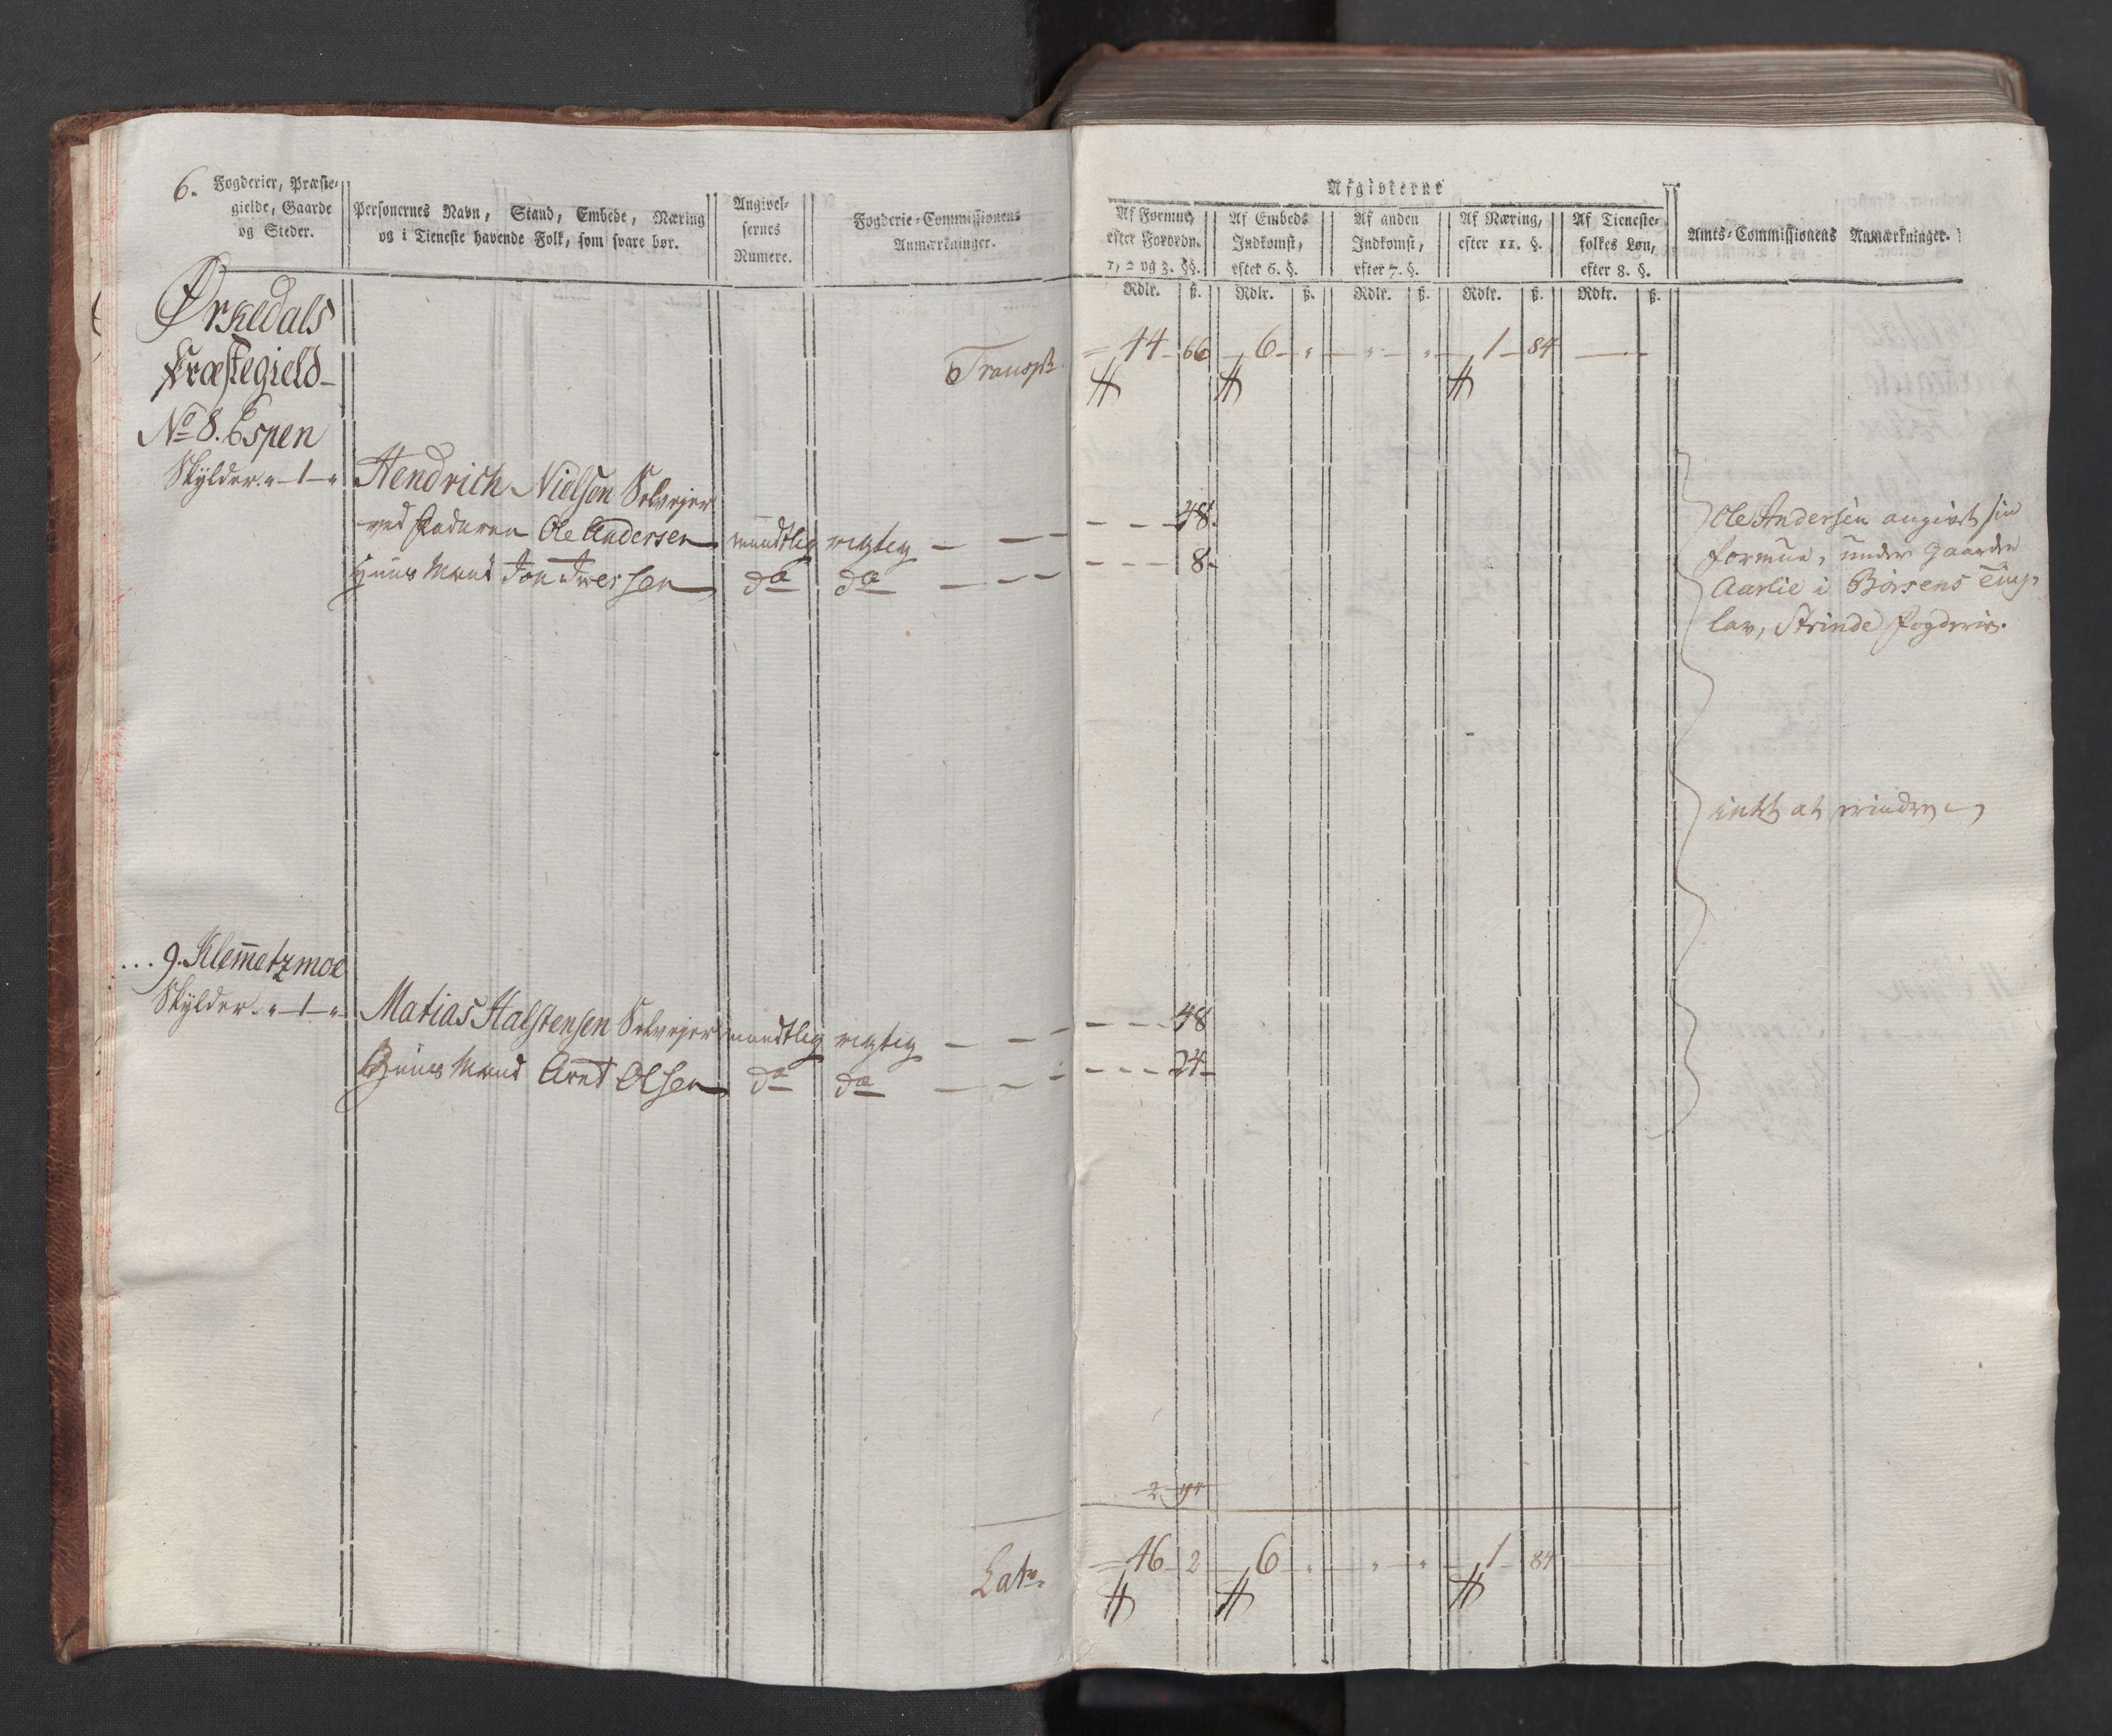 6.
Fogderier, Præste-
gielde, Gaarde
og Steder.
Personernes Navn, Stand, Embede, Næring
og i Tieneste havende Folk, som svare bør.
Angivel-
sernes
Numere.
Fogderie-Commissionens
Anmærkninger.
Afgivterne
Af Formue,
efter Forordn.
1, 2 og 3. §§.
Af Embeds
Indkomst,
efter 6. §.
Af anden
Indkomst,
efter 7. §.
Af Næring,
efter 11. §.
Af Tieneste-
folkes Løn,
efter 8. §.
Amts-Commissionens Anmærkninger.
Rdlr. ß. Rdlr. ß. Rdlr. ß. Rdlr. ß. Rdlr. ß.
Ørkedals
Præstegield
Transpt 44 66 6 " " " 1 84
No 8. Espen
Skylder " 1 " Hendrich Nielsen Selveyer
ved Faderen Ole Andersen mundtlig rigtig 48
Huus Mand Jon Iversen do do 8
Ole Andersen angivet sin
formue, under Gaarden
Aarlie i Børsens Ting-
lav, Strinde fogderie.
intet at erindre
9. Klemetzmoe
Skylder " 1 " Matias Halstensen Selveyer mundtlig rigtig 48
Huus Mand Arnt Olsen do do 24
Lat. 46 2 6 " " " 1 84